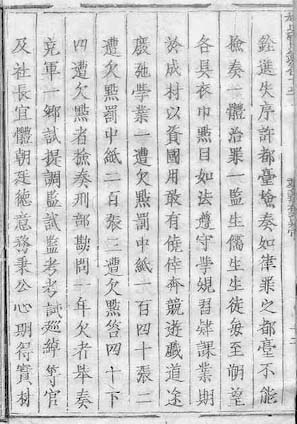 銓選失序許都臺檢奏如律罪之都臺不能
檢奏一體治罪一監生儒生生徒每至朔望
各具衣巾點目如法遵守學規習肄課業期
於成材以資國用敢有僥倖奔競遊戲道途
廢弛學業一遭欠點罰中紙一百四十張二
遭欠點罰中紙二百張三遭欠點笞四十下
四遭欠點者檢奏刑部勘問一年欠者舉奏
充軍一鄉試提調監試監考考試巡綽等官
及社長宜體朝廷德意務秉公心明得實材